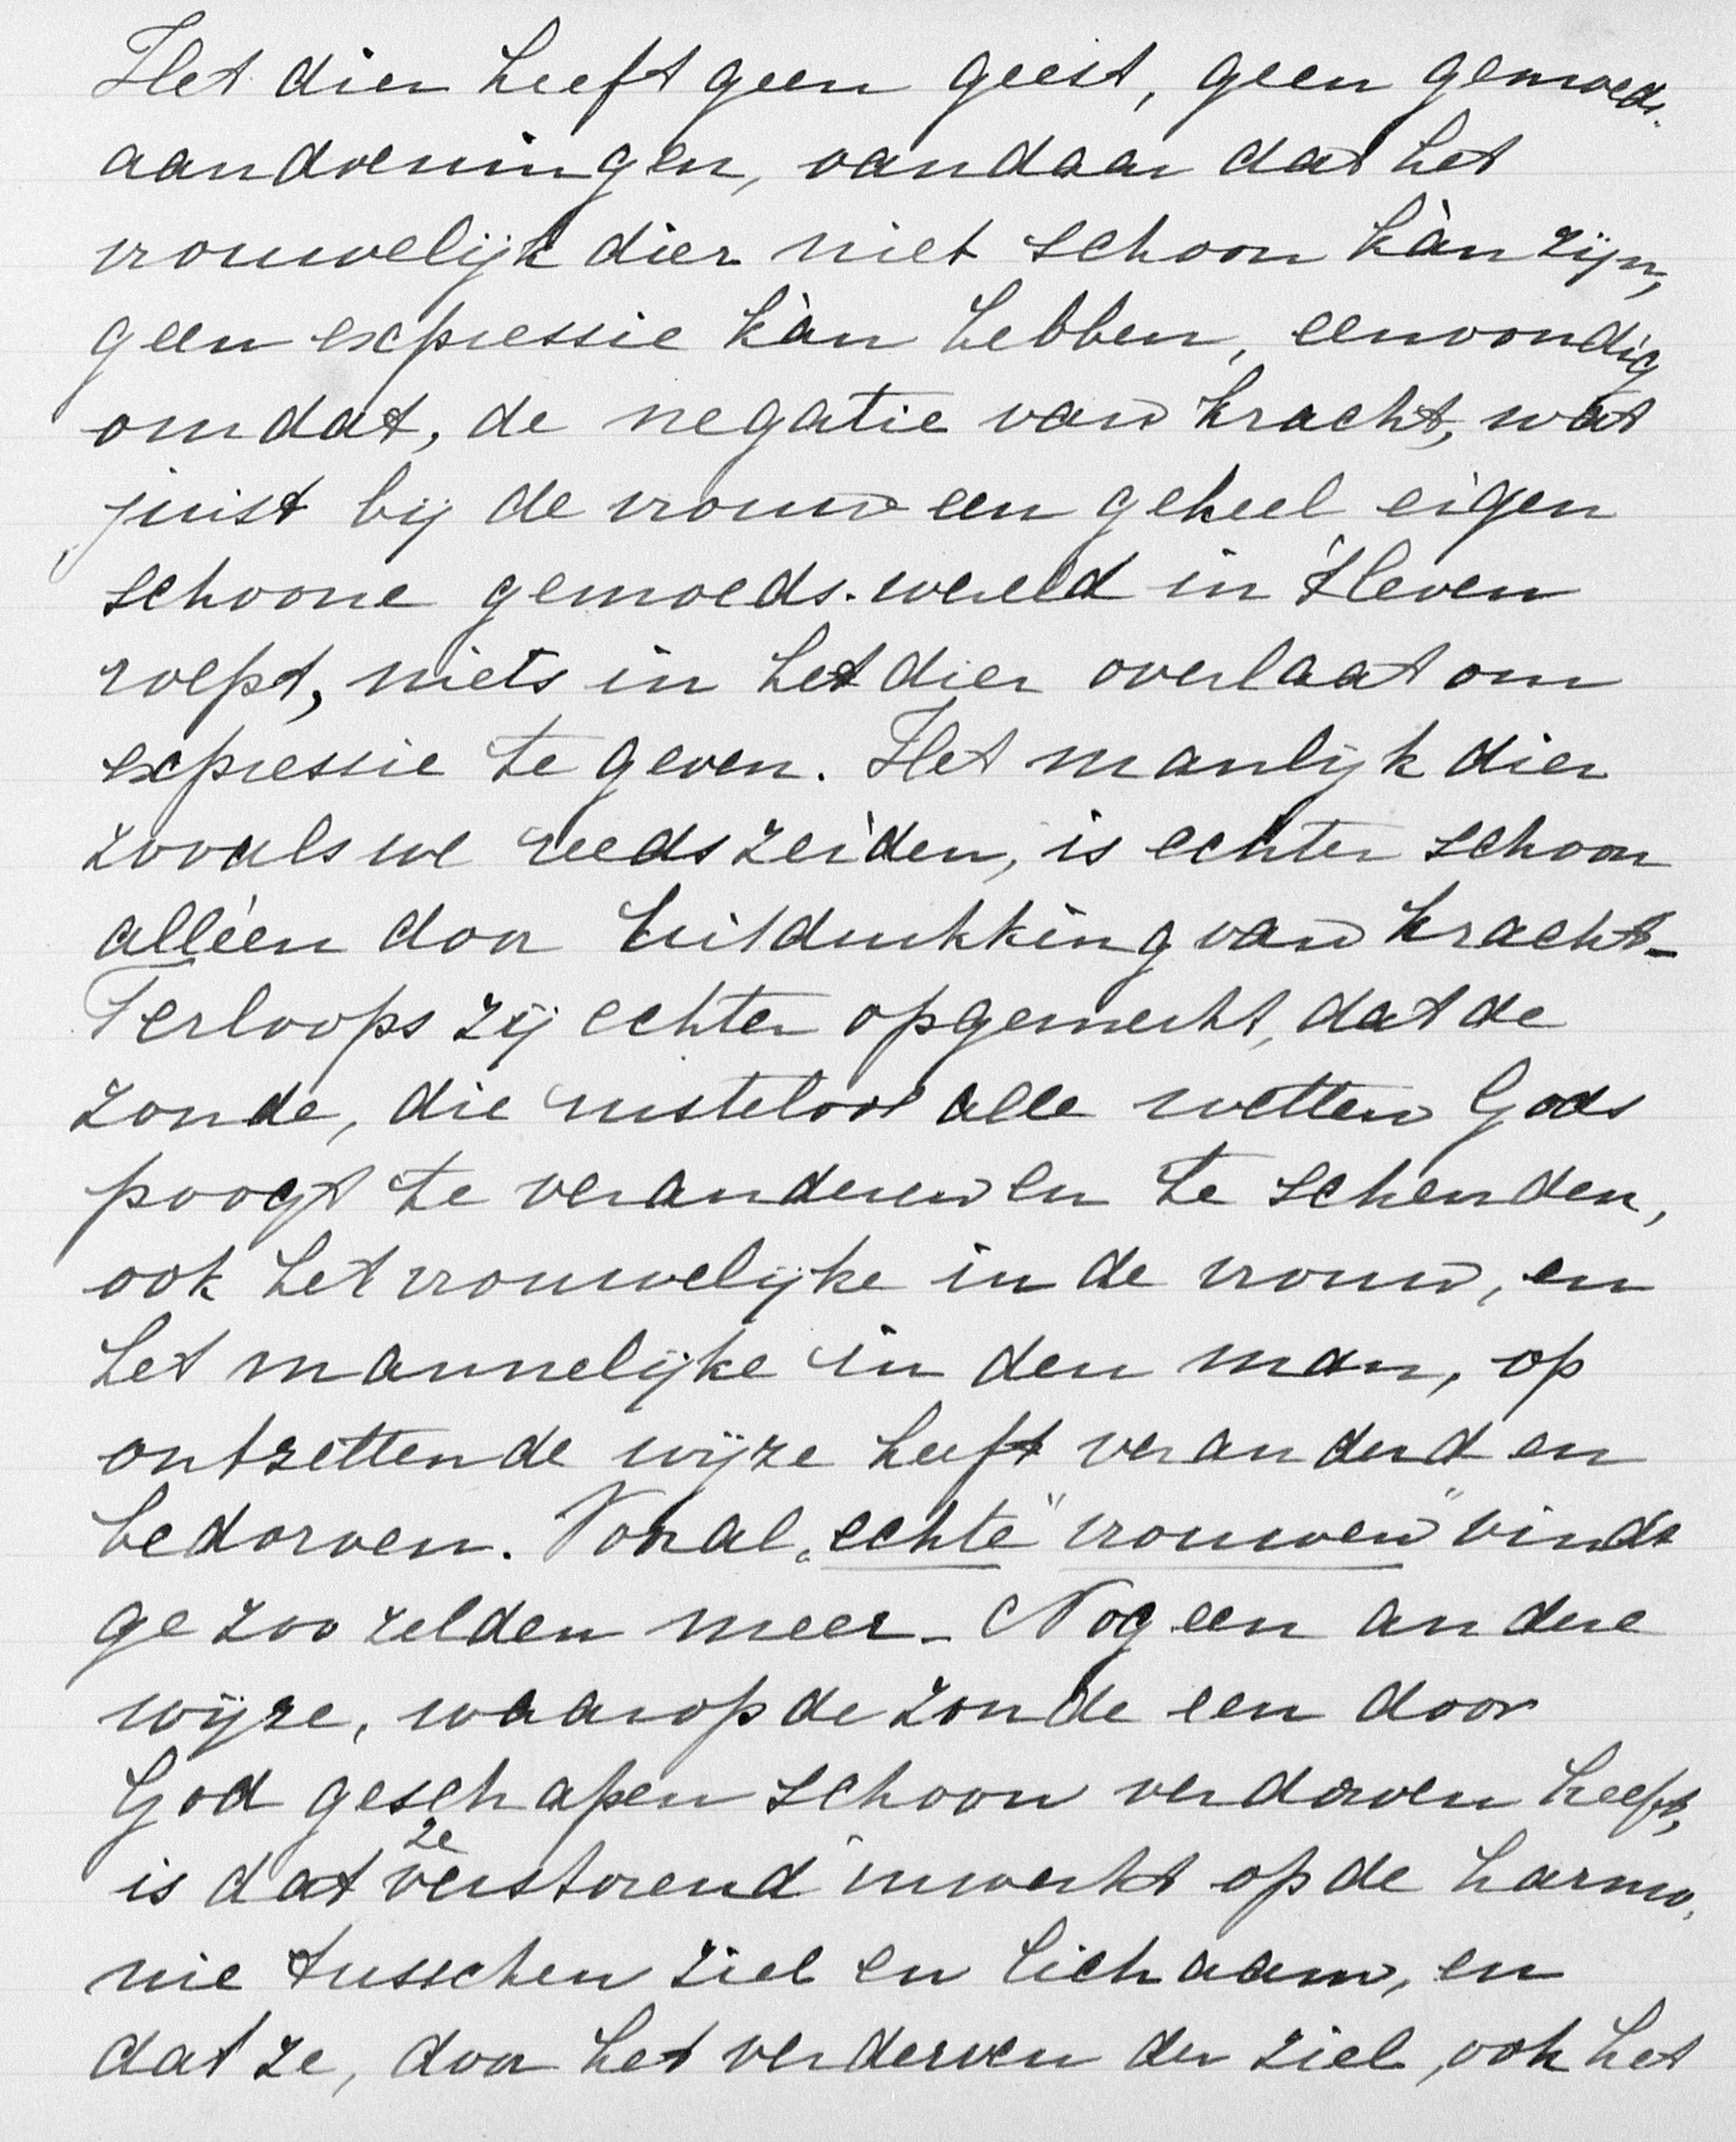 Het dier heeft geen geest, geen gemoeds-
aandoeningen, vandaar dat het
vrouwelijk dier niet schoon kàn zijn,
geen expressie kàn hebben, eenvoudig
omdat, de negatie van kracht, wat
juist bij de vrouw een geheel eigen
schoone gemoeds-wereld in 't leven
roept, niets in het dier overlaat om
expressie te geven. Het manlijk dier
zooals we reeds zeiden, is echter schoon
alléen door uitdrukking van kracht-
Terloops zij echter opgemerkt, dat de
zonde, die rusteloos alle wetten Gods
poogt te veranderen en te schenden,
ook het vrouwelijke in de vrouw, en
het mannelijke in den man, op
ontzettende wijze heeft veranderd en
bedorven. Vooral „echte" vrouwen" vindt
ge zoo zelden meer - Nog een andere
wijze, waarop de zonde een door
God geschapen schoon verdorven heeft,
is dat ze verstorend inwerkt op de harmo-
nie tusschen ziel en lichaam, en
dat ze, door het verderven der ziel, ook het